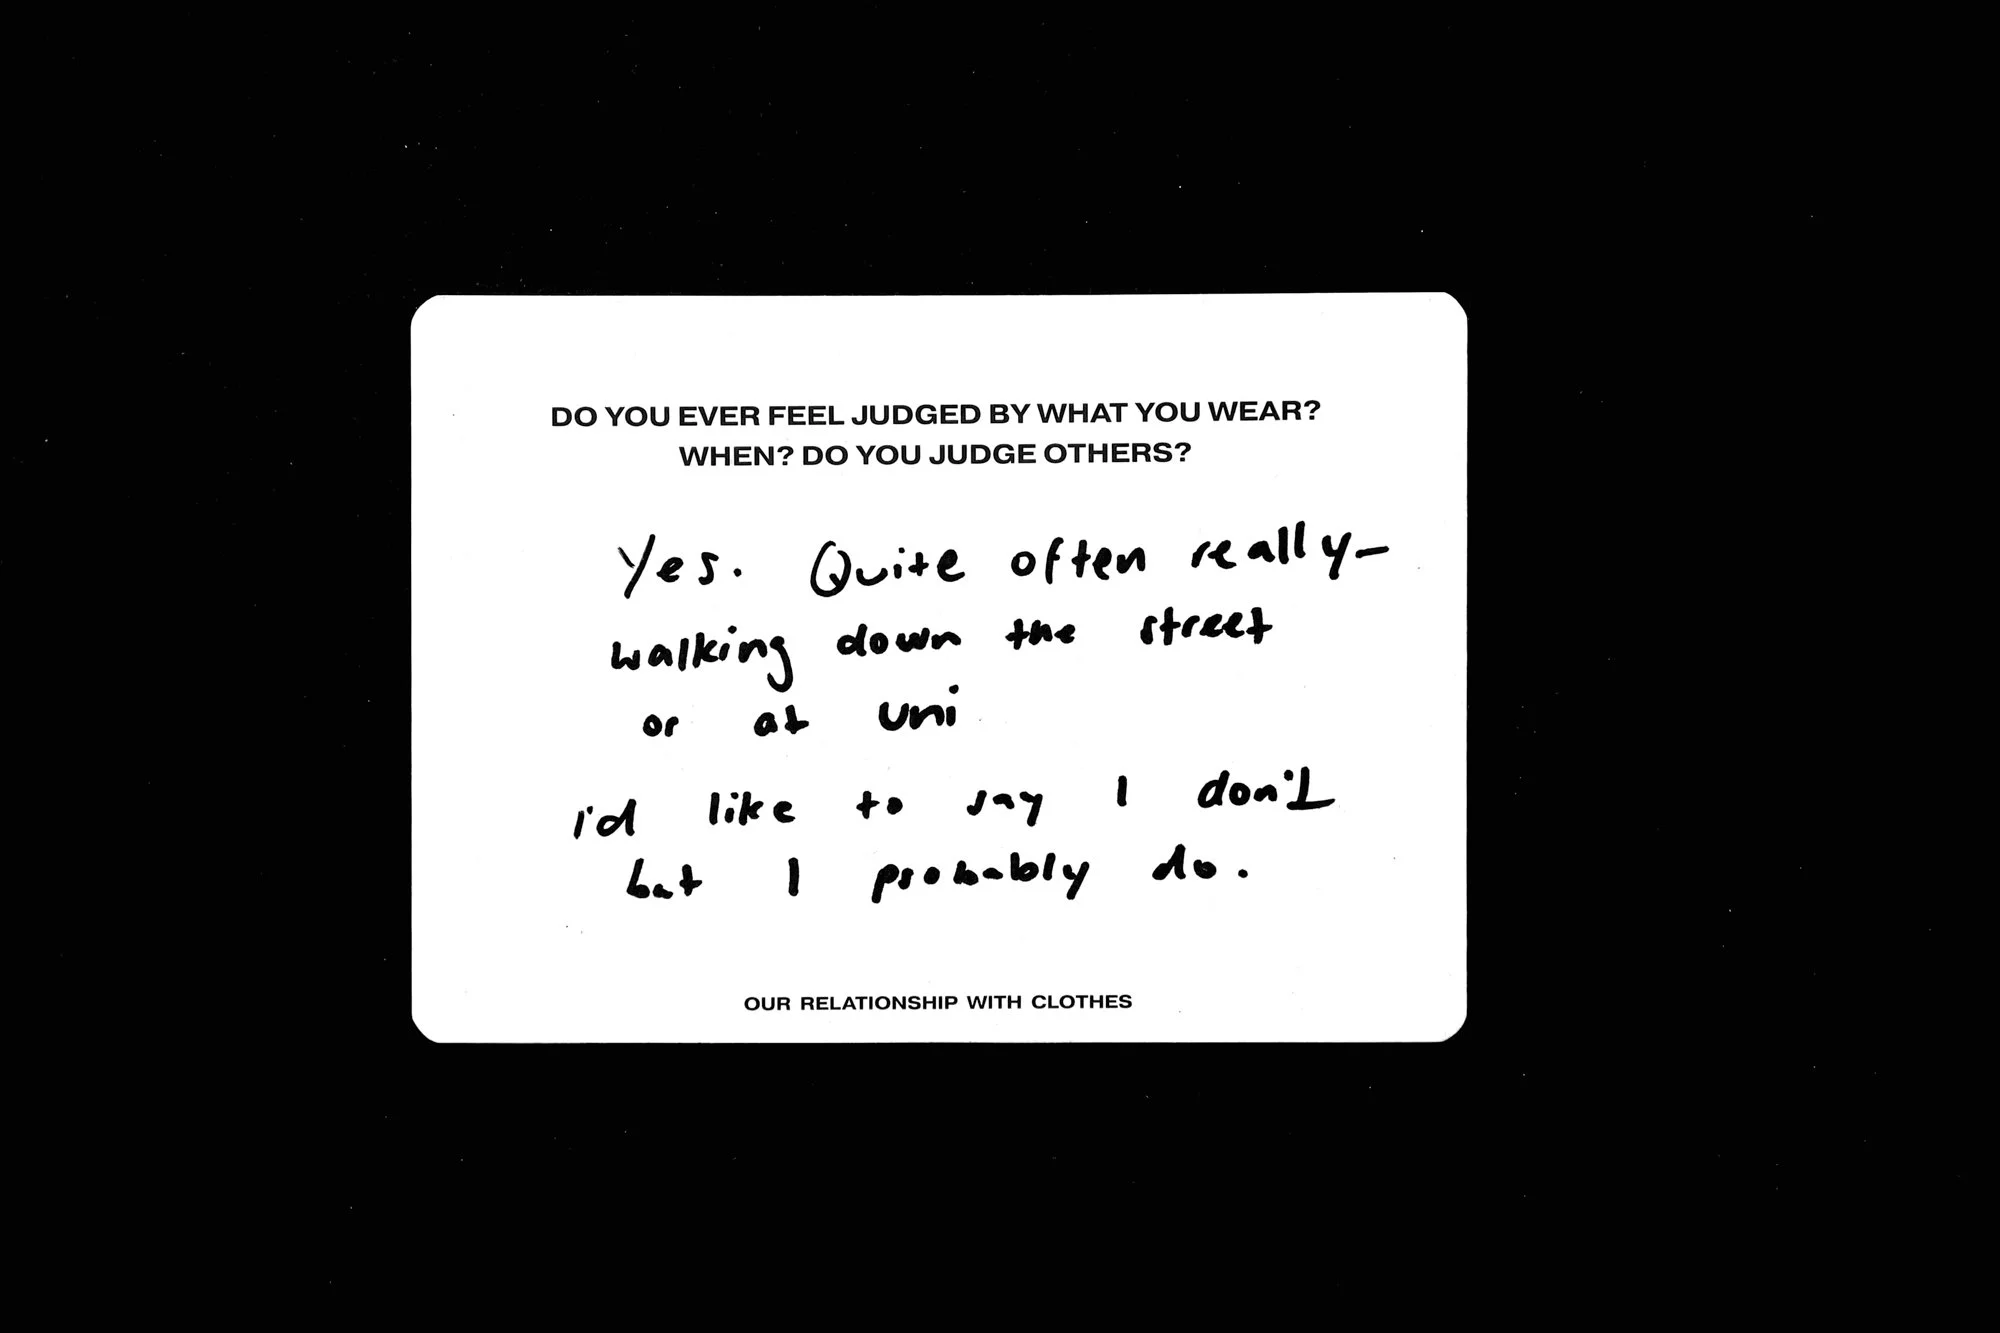 DO YOU EVER FEEL JUDGED BY WHAT YOU WEAR?
WHEN? DO YOU JUDGE OTHERS?
Yes. Quite often really–
walking down the street
or at uni
i'd like to say I don't
but I probably do.
OUR RELATIONSHIP WITH CLOTHES